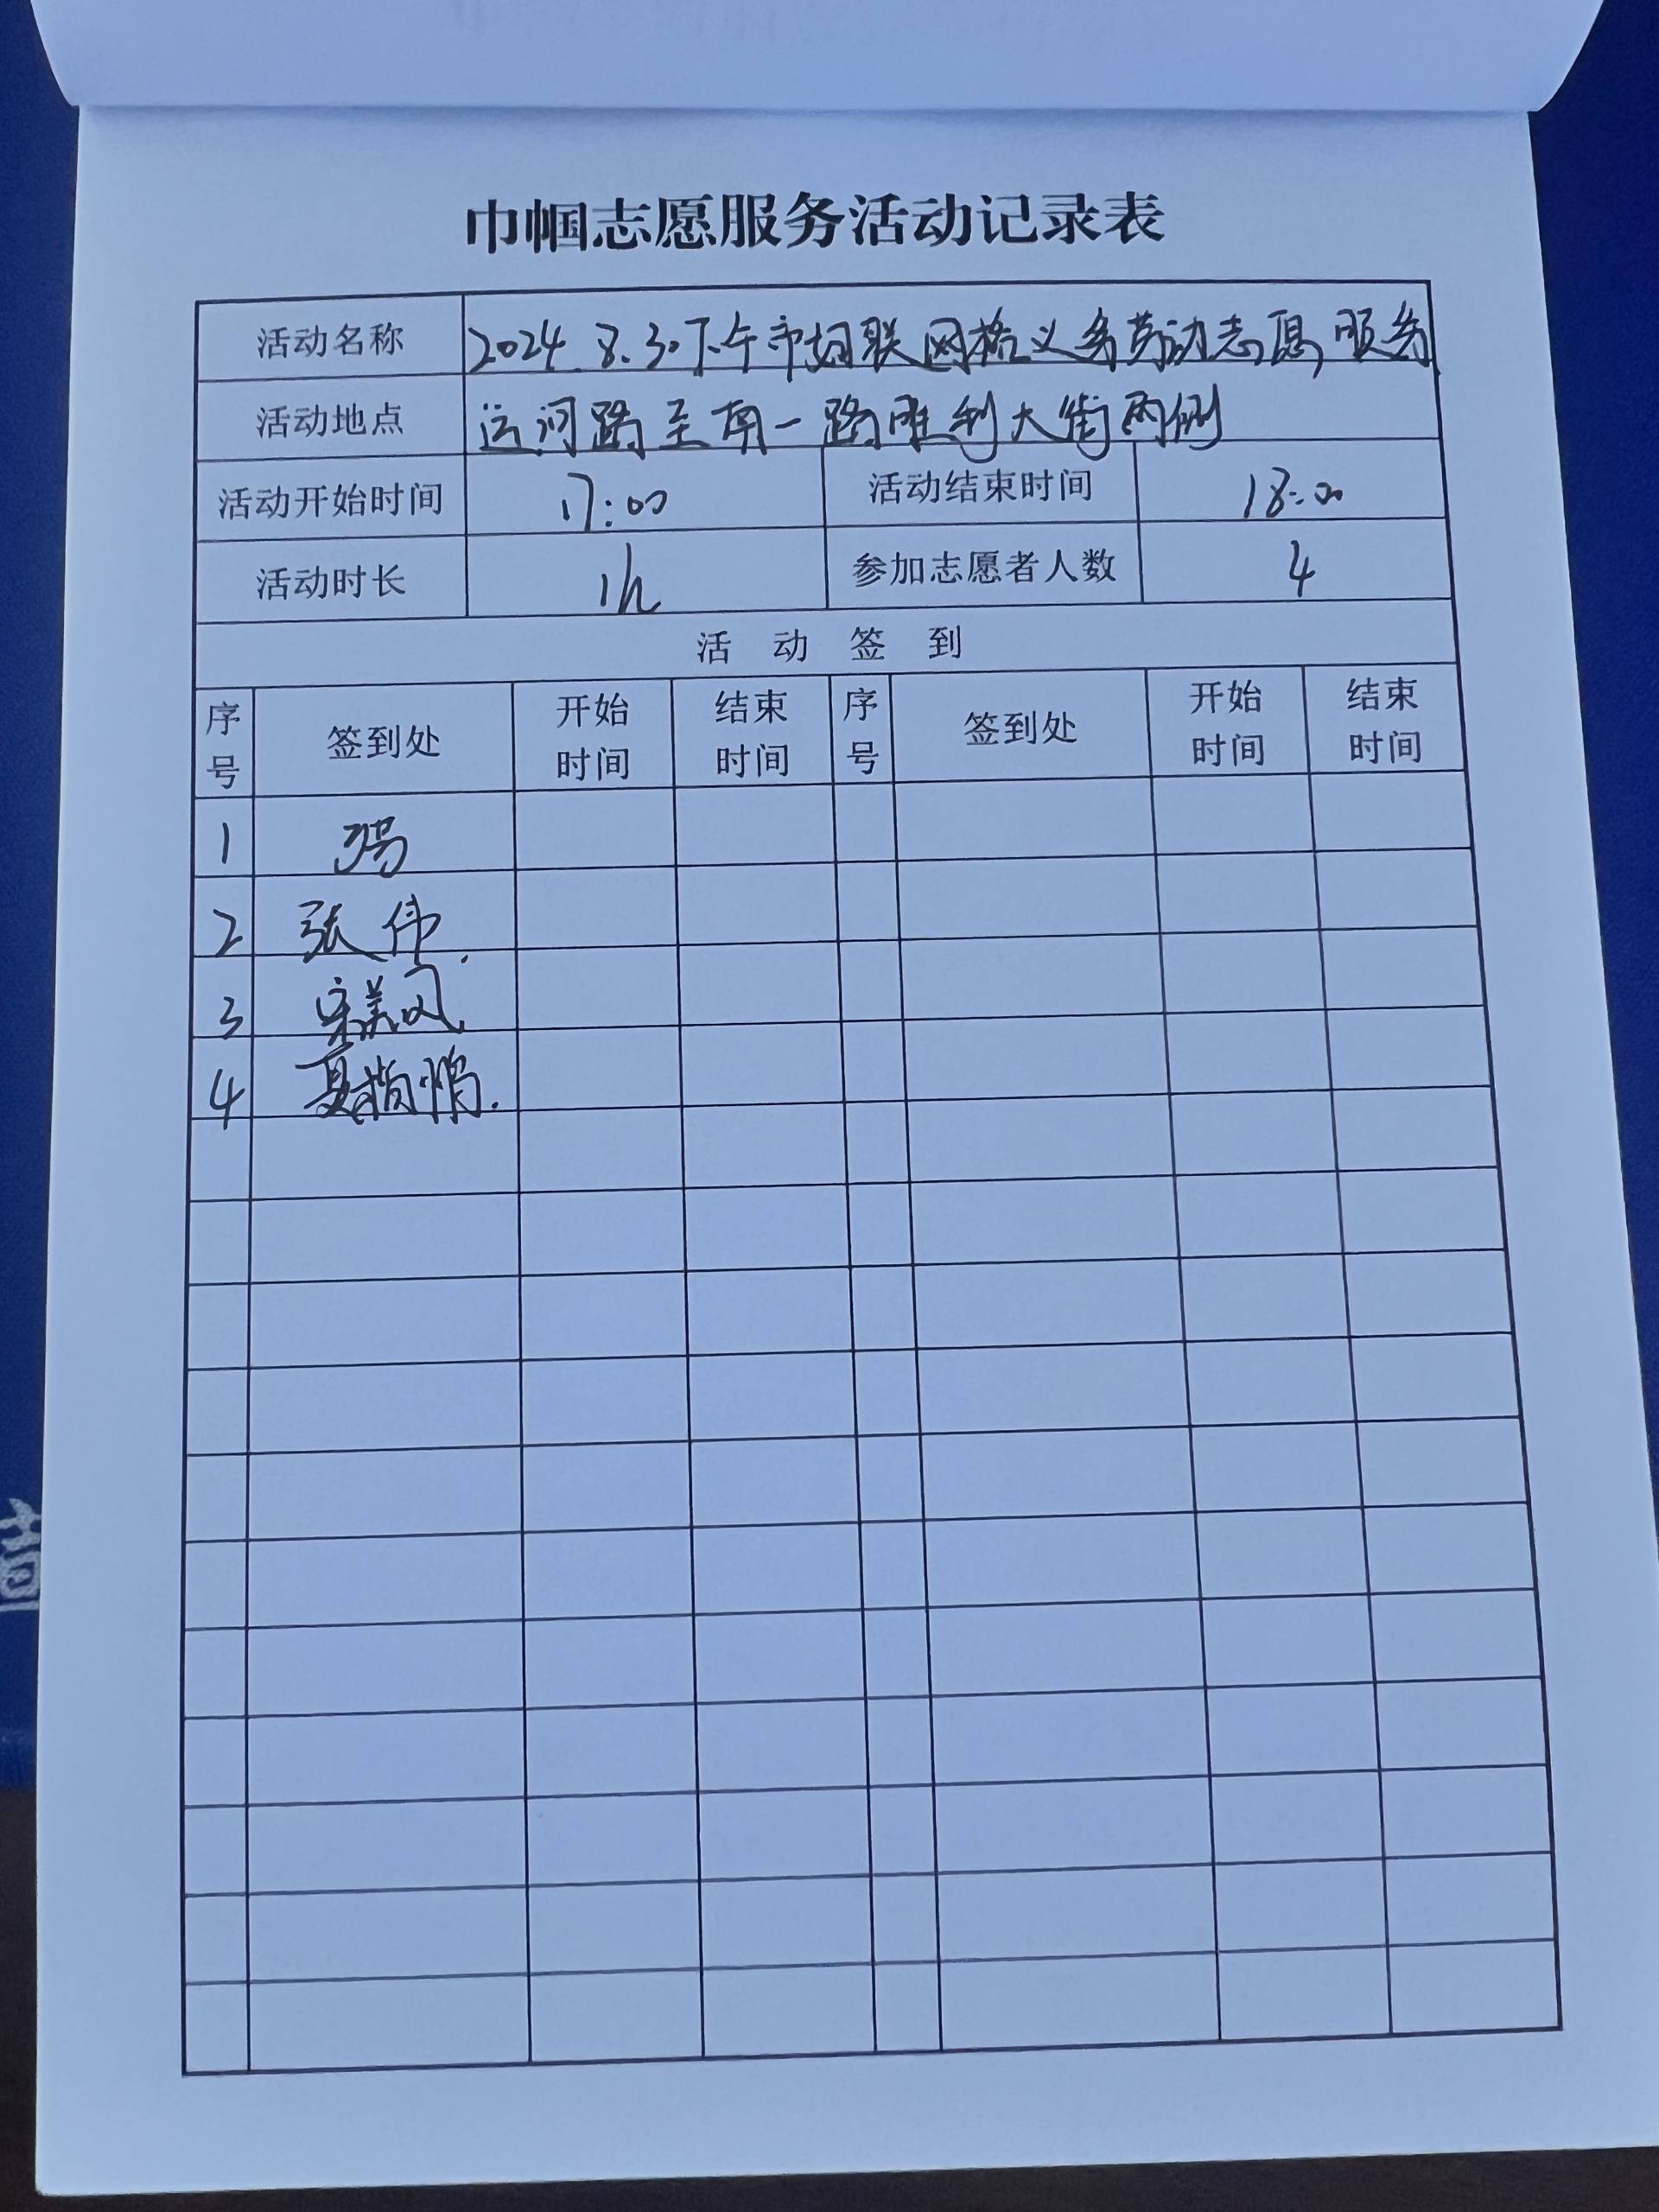 巾帼志愿服务活动记录表
活动名称 2024.8.30下午市妇联网格义务劳动志愿服务
活动地点 运河路至南一路胜利大街两侧
活动开始时间 17:00 活动结束时间 18:00
活动时长 1h 参加志愿者人数 4
活动签到
序号 签到处 开始时间 结束时间 序号 签到处 开始时间 结束时间
1
2 张伟
3 宋美凤
4 夏 鹏